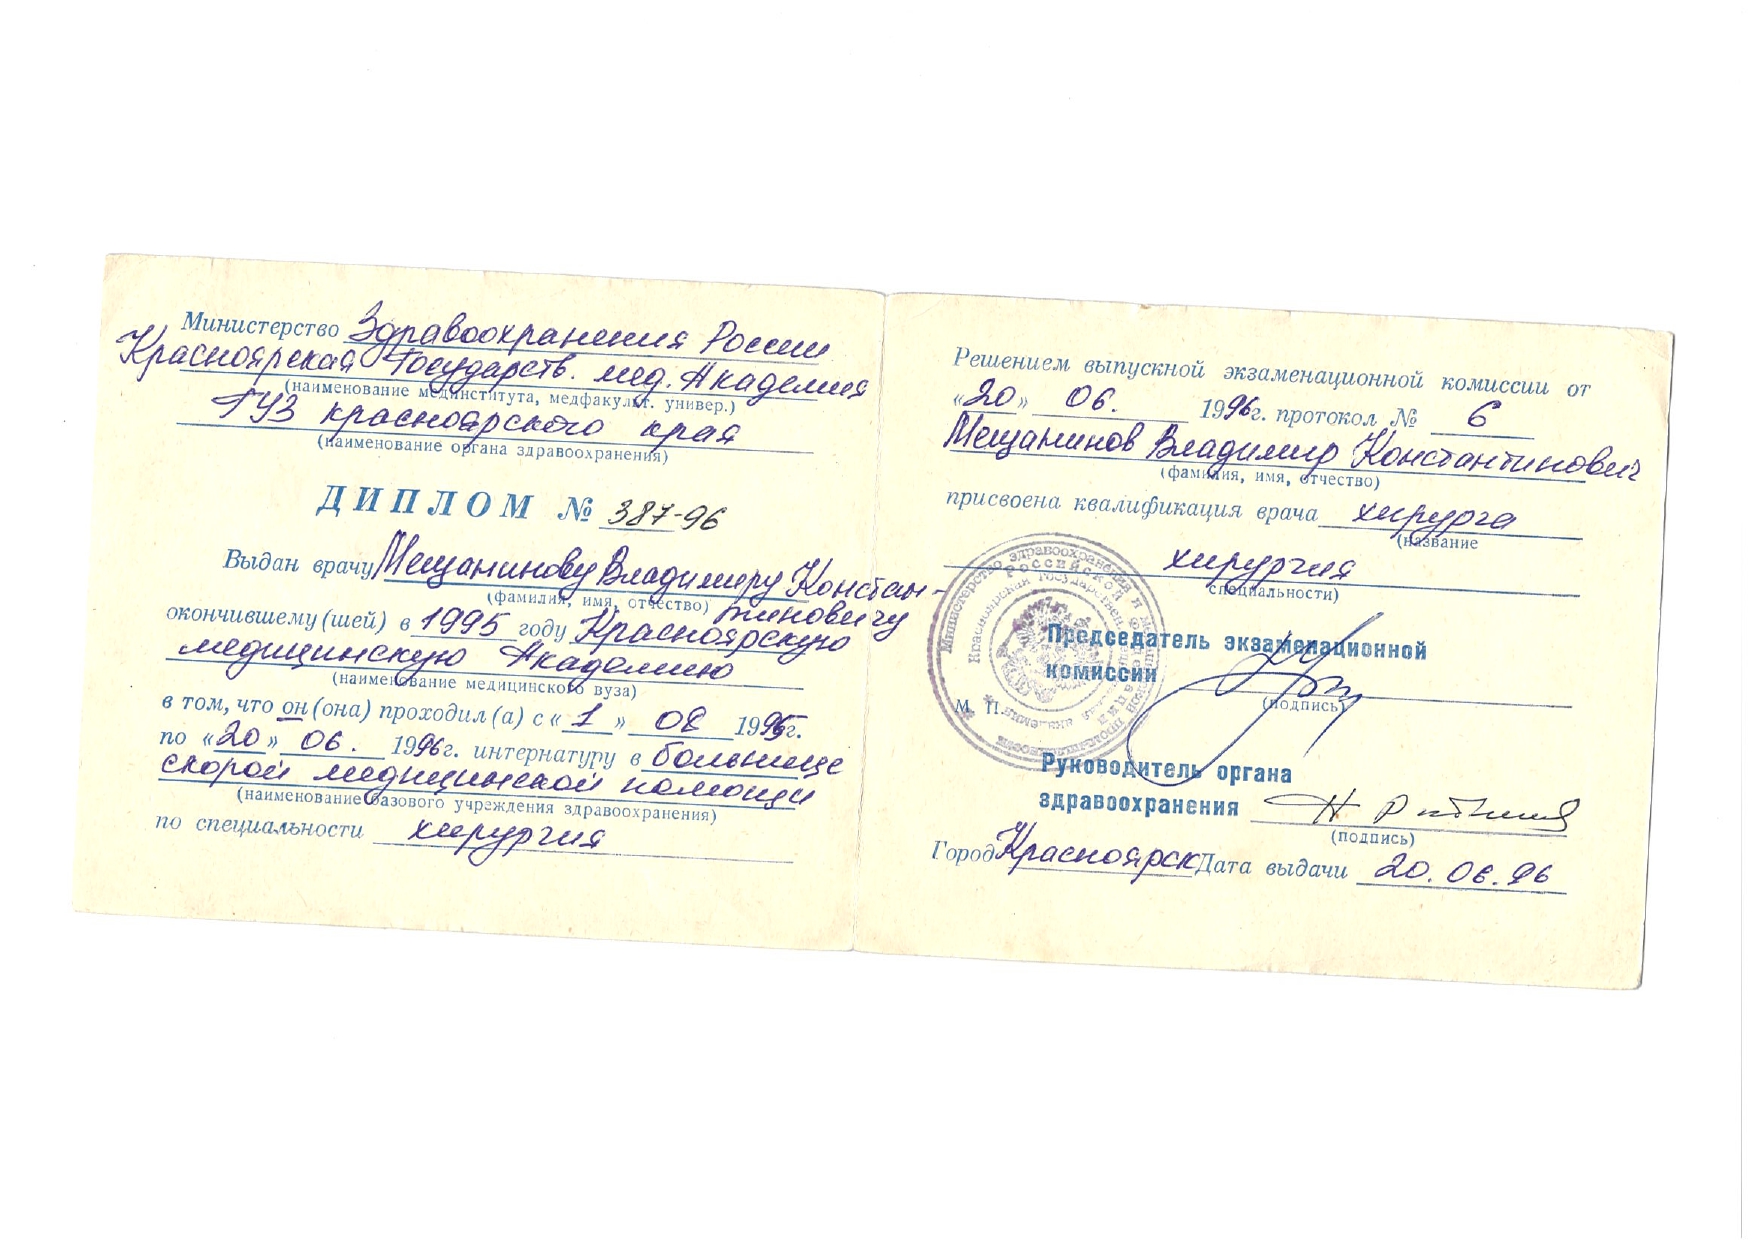 Министерство Здравоохранения России
Красноярская Государств. мед. Академия
(наименование мединститута, медфакульт. универ.)
ГУЗ красноярского края
(наименование органа здравоохранения)
ДИПЛОМ № 387-96
Выдан врачу Мещанинову Владимиру Констан-
(фамилия, имя, отчество) тиновичу
окончившему (шей) в 1995 году Красноярскую
медицинскую Академию
(наименование медицинского вуза)
в том, что он (она) проходил (а) с « 1 » 08 1995г.
по «20» 06. 1996г. интернатуру в больнице
скорой медицинской помощи
(наименование базового учреждения здравоохранения)
по специальности хирургия
Решением выпускной экзаменационной комиссии от
«20» 06. 1996г. протокол № 6
Мещанинов Владимир Константинович
(фамилия, имя, отчество)
присвоена квалификация врача хирурга
(название
хирургия
специальности)
Председатель экзаменационной
комиссии
М. П. (подпись)
Руководитель органа
здравоохранения
(подпись)
Город Красноярск Дата выдачи 20.06.96
Министерство здравоохранения и медицинской промышленности
Российской Федерации
Красноярская государственная медицинская академия